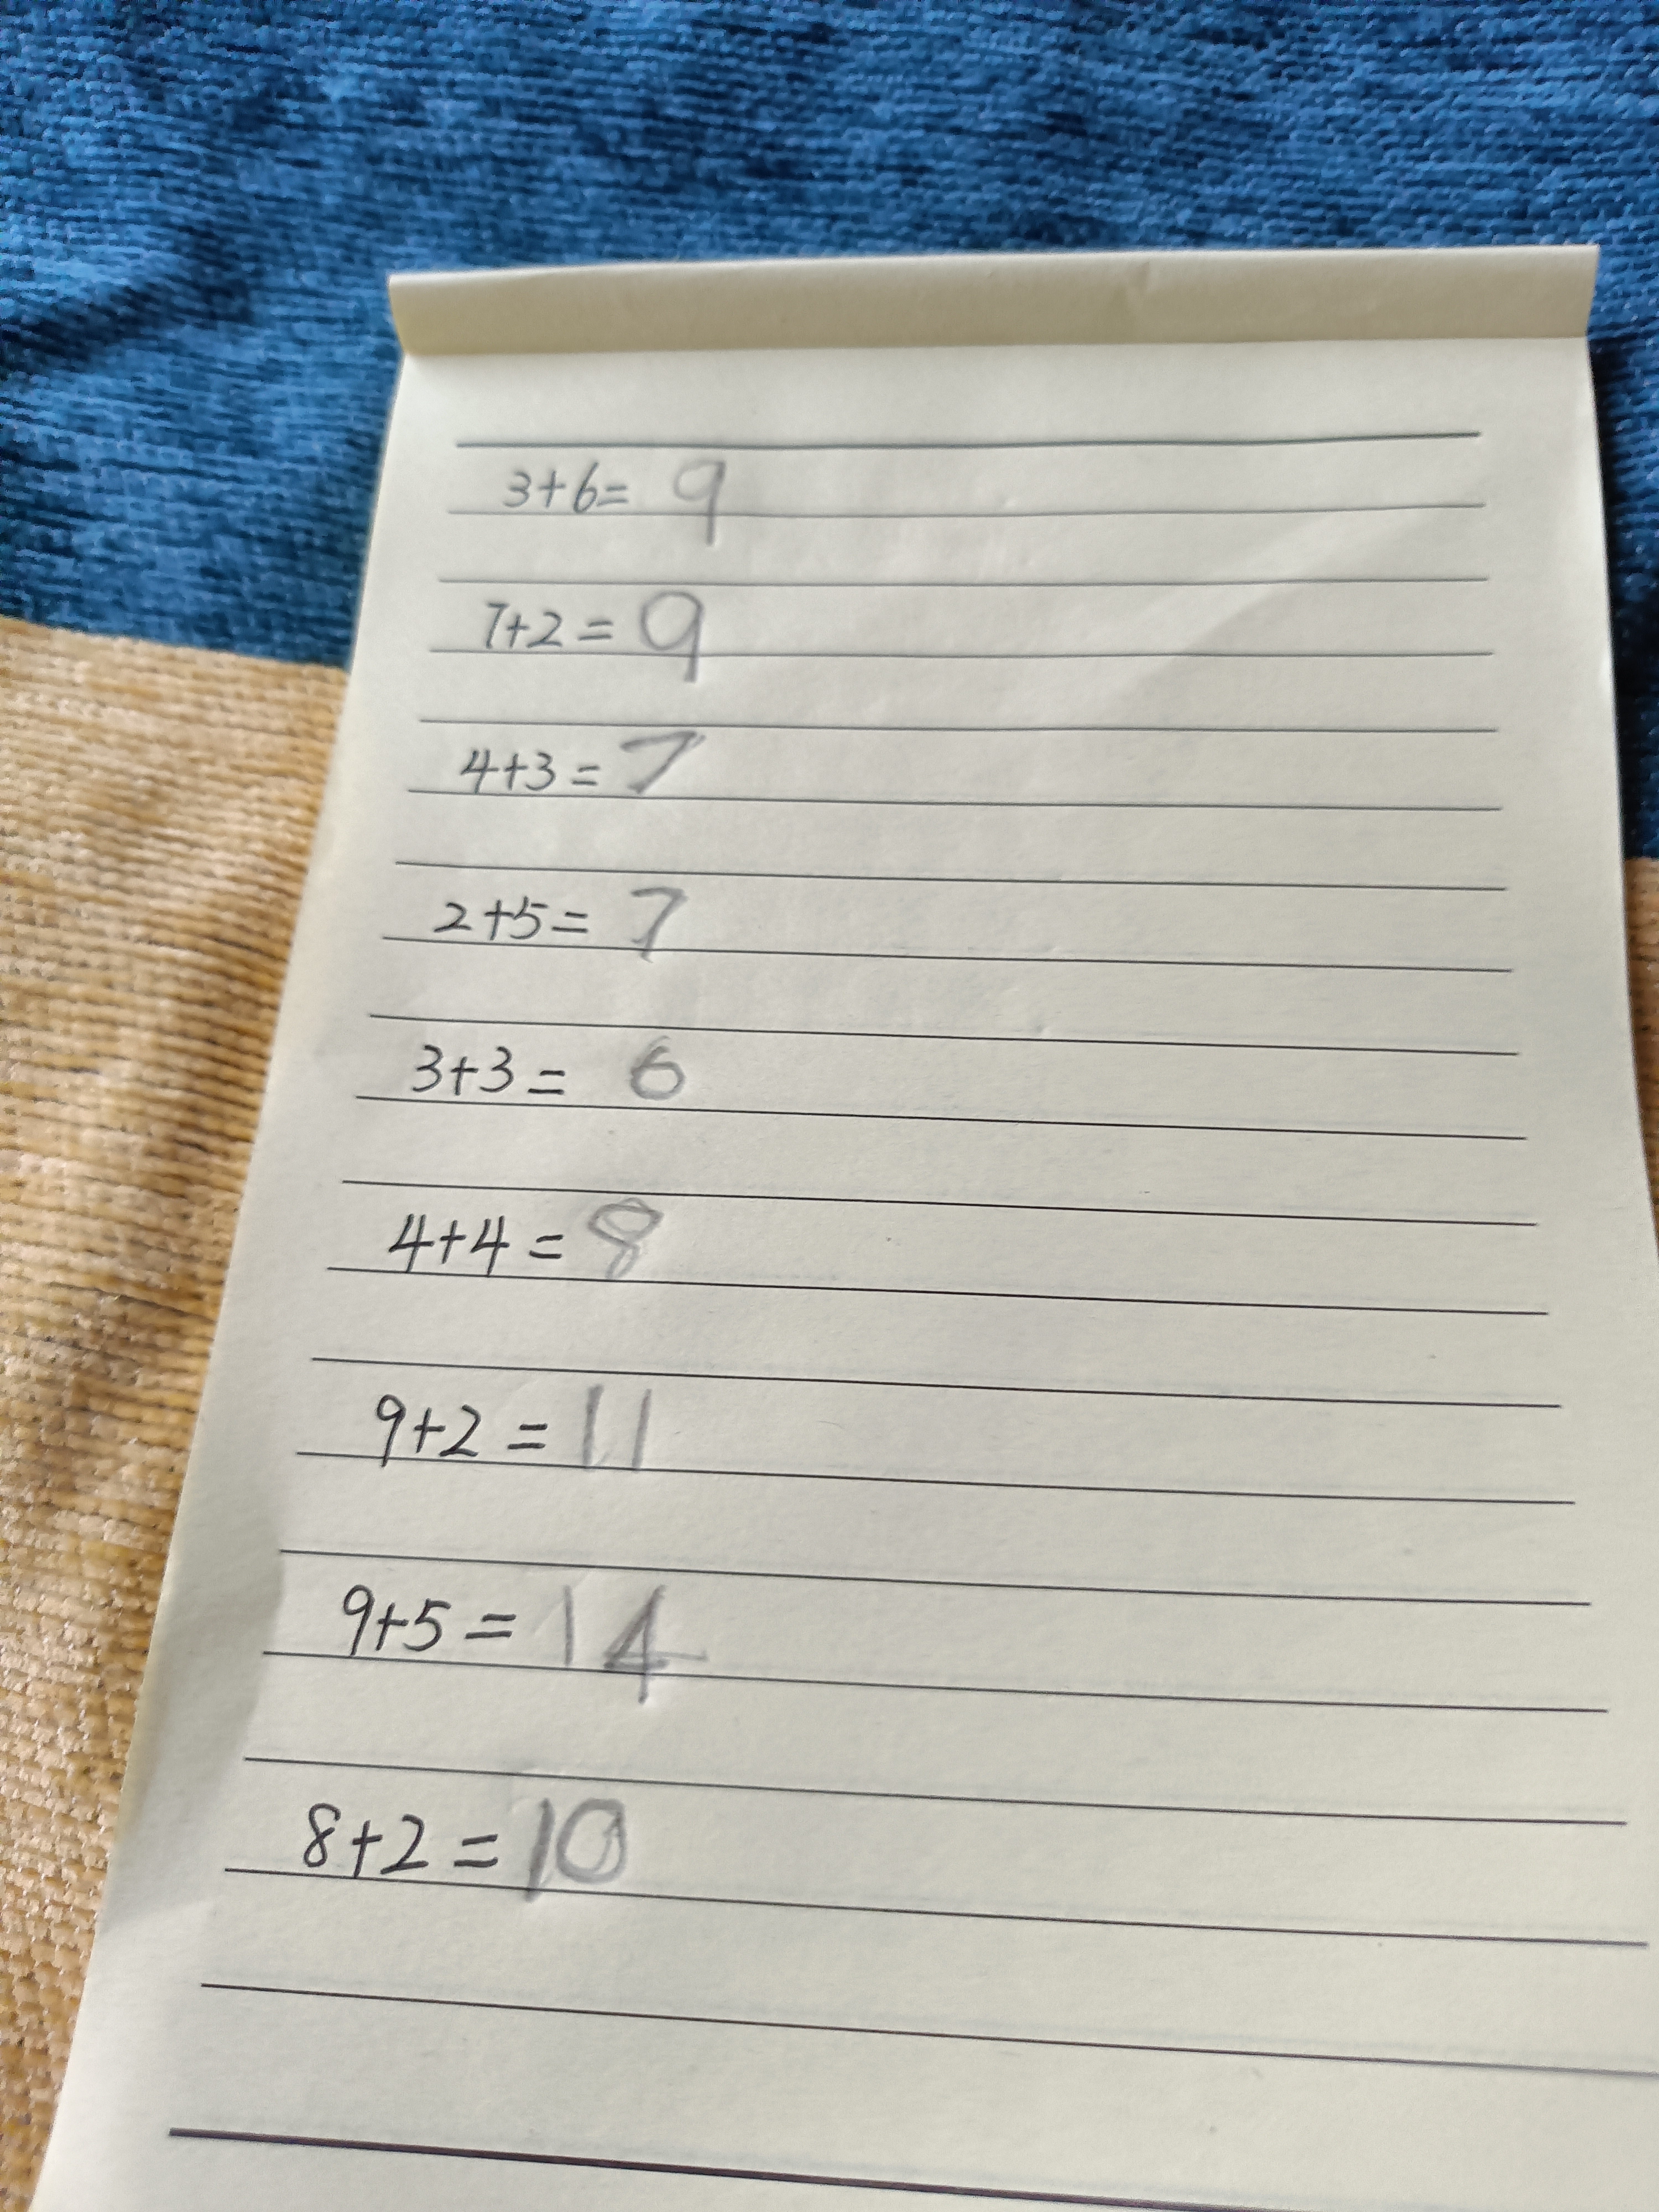 3+6= 9
7+2= 9
4+3= 7
2+5= 7
3+3= 6
4+4= 8
9+2= 11
9+5= 14
8+2= 10